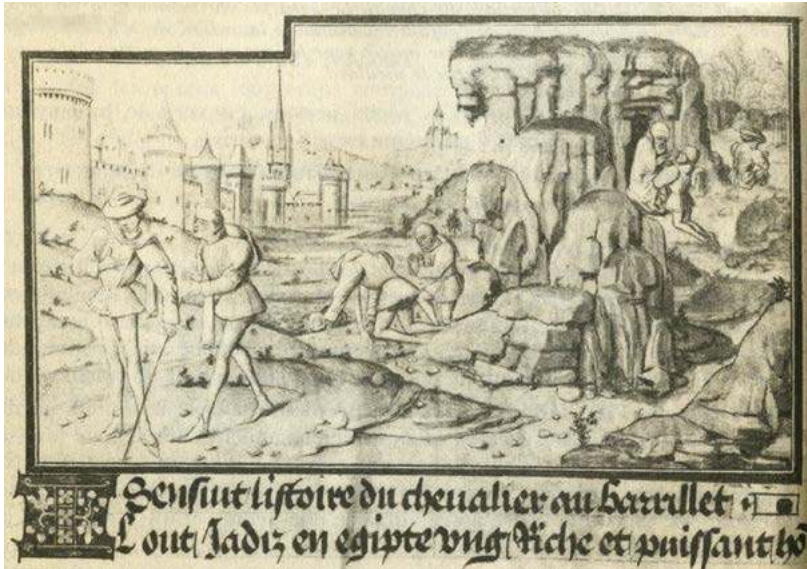 Sensiut listoire du cheualier au barrillet
Il out Jadiz en egipte vng Riche et puissant ho